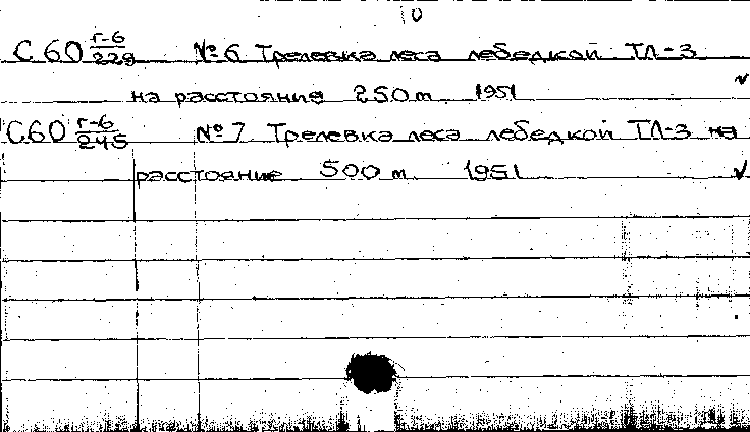 С60 г-6/229 № 6 Трелевка леса лебедкой ТЛ-3
на расстояние 250 m 1951
С60 г-6/245 № 7 Трелевка леса лебедкой ТЛ-3 на
расстояние 500 m. 1951